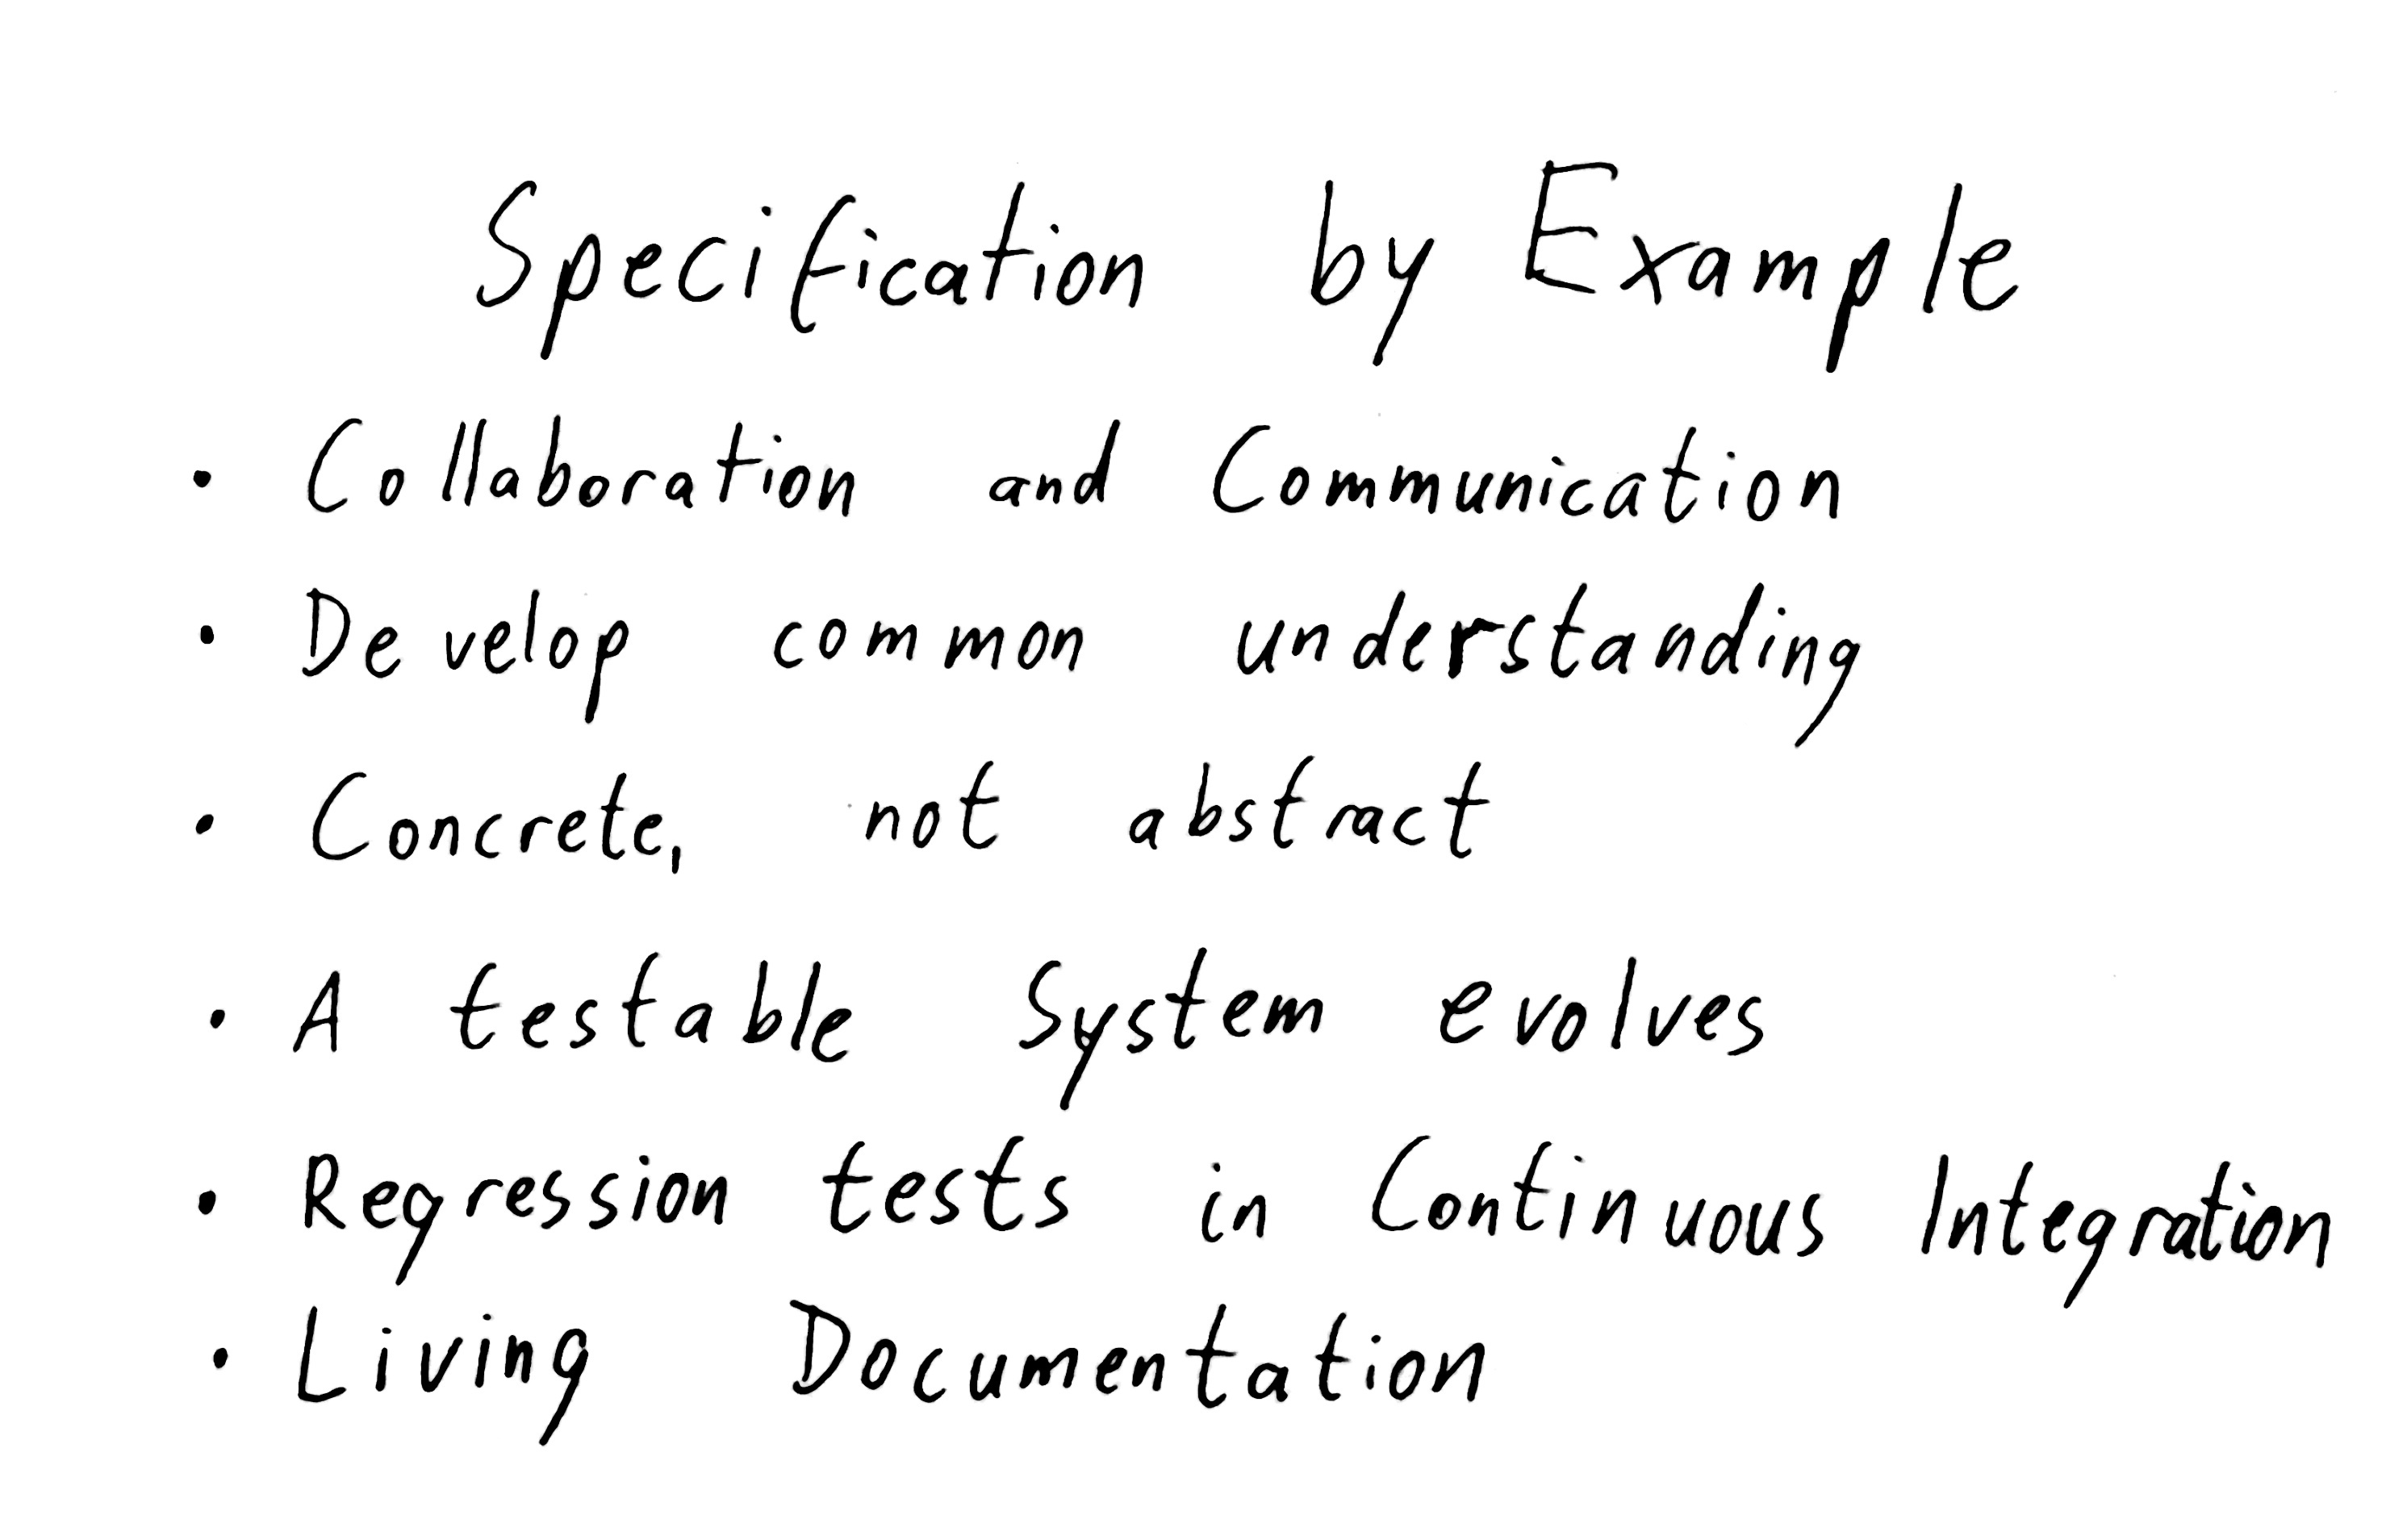 Specification by Example
• Collaboration and Communication
• Develop common understanding
• Concrete, not abstract
• A testable System evolves
• Regression tests in Continuous Integration
• Living Documentation